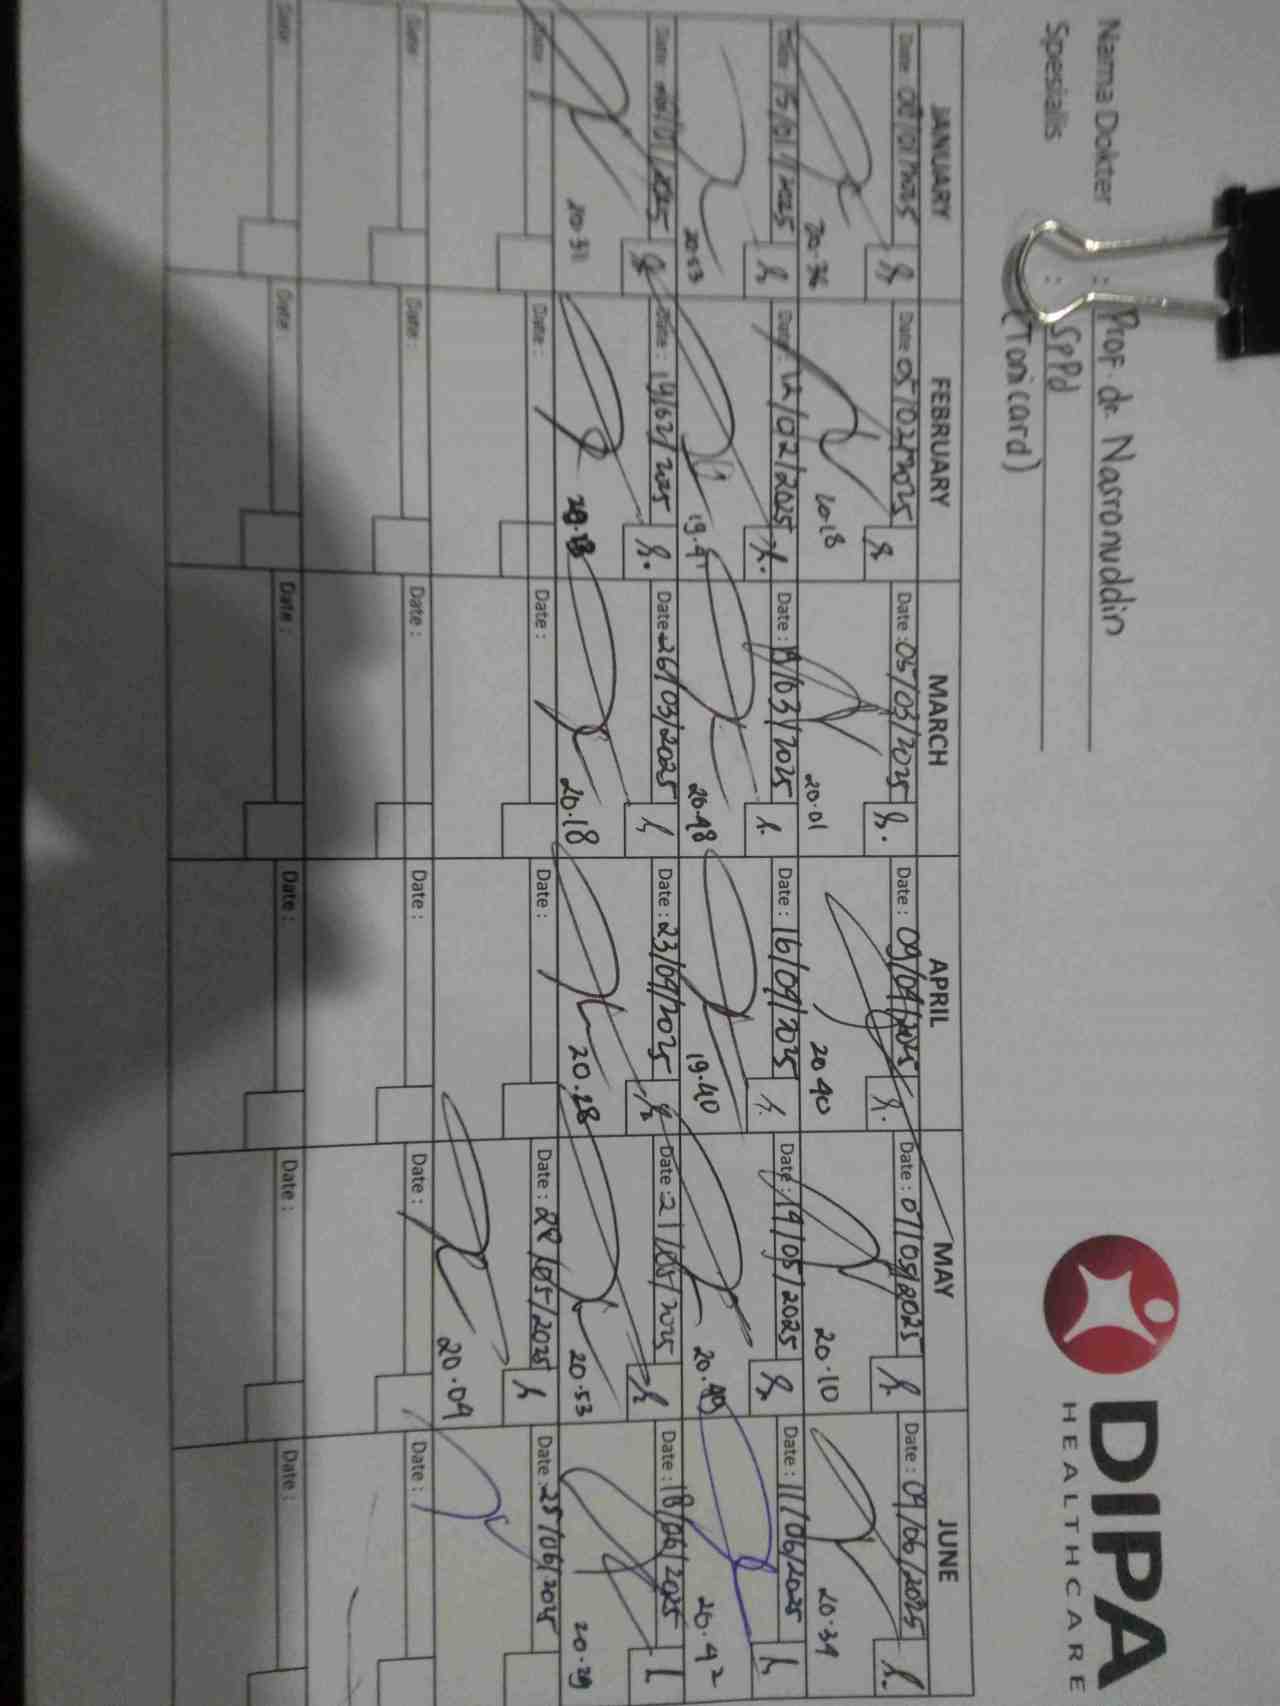 Nama Dokter : Prof. dr. Nasronuddin
Spesialis : SpPd
(Tonicard)
DIPA
HEALTHCARE
JANUARY FEBRUARY MARCH APRIL MAY JUNE
Date: 08/01/2025 Date: 05/02/2025 Date: 05/03/2025 Date: 09/04/2025 Date: 07/05/2025 Date: 04/06/2025
20.36 20.18 20.01 20.40 20.10 20.34
Date: 15/01/2025 Date: 12/02/2025 Date: 19/03/2025 Date: 16/04/2025 Date: 14/05/2025 Date: 11/06/2025
20.53 19.41 20.48 19.40 20.49 20.42
Date: /01/2025 Date: 19/02/2025 Date: 26/03/2025 Date: 23/04/2025 Date: 21/05/2025 Date: 18/06/2025
20.31 20.18 20.28 20.53 20.29
Date: Date: Date: Date: Date: 28/05/2025 Date: 25/06/2025
20.04
Date: Date: Date: Date: Date: Date:
Date: Date: Date: Date: Date: Date: